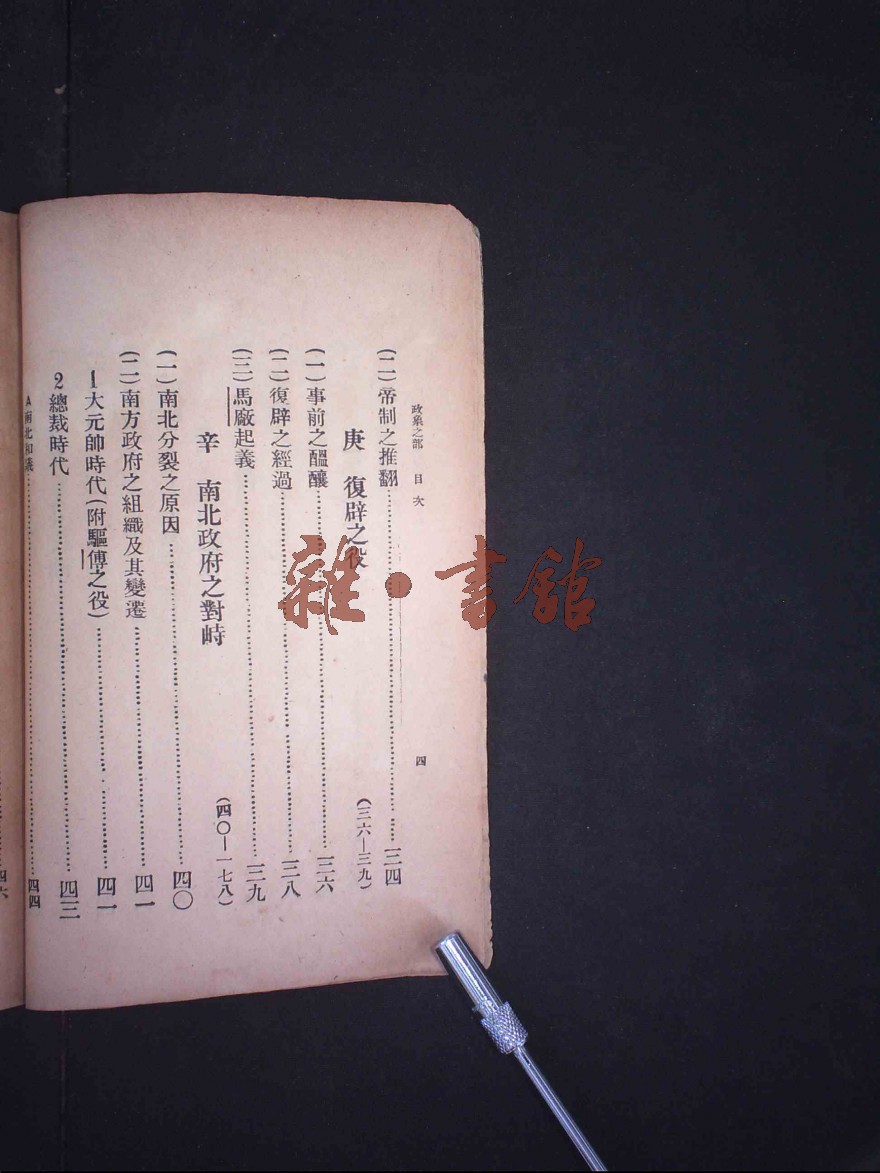 政象之部　目次　四
(二)帝制之推翻……三四
庚　復辟之役　(三六—三九)
(一)事前之醞釀……三六
(二)復辟之經過……三八
(三)馬廠起義……三九
辛　南北政府之對峙　(四〇—一七八)
(一)南北分裂之原因……四〇
(二)南方政府之組織及其變遷……四一
1大元帥時代(附驅傅之役)……四一
2總裁時代……四三
A南北和議……四四
四六
雜·書館